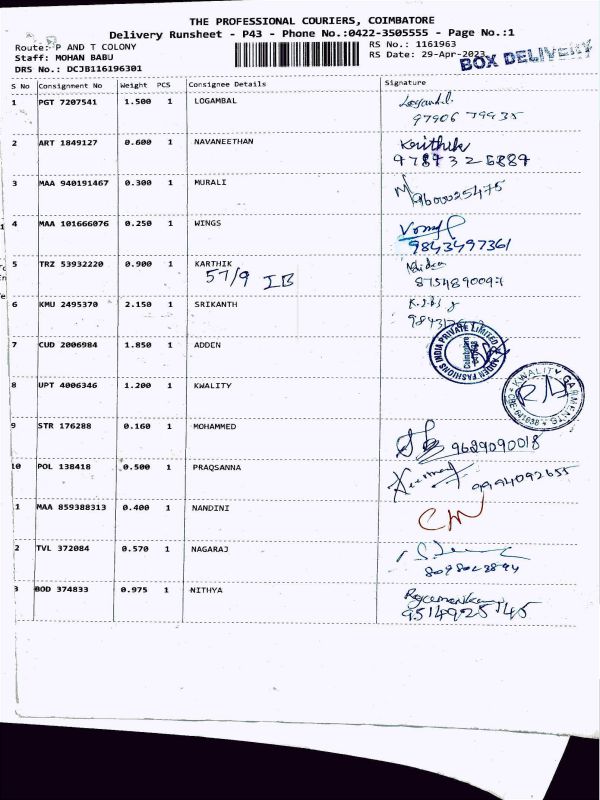 THE PROFESSIONAL COURIERS, COIMBATORE
Delivery Runsheet - P43 - Phone No.:0422-3505555 - Page No.:1
Route: P AND T COLONY
RS No.: 1161963
Staff: MOHAN BABU
RS Date: 29-Apr-2023
BOX DELIVERY
DRS No.: DCJB116196301
S No Consignment No Weight PCS Consignee Details Signature
1 PGT 7207541 1.500 1 LOGAMBAL
97906 79935
2 ART 1849127 0.600 1 NAVANEETHAN Keerithik
3 MAA 940191467 0.300 1 MURALI
9600025475
4 MAA 101666076 0.250 1 WINGS
9843497361
5 TRZ 53932220 0.900 1 KARTHIK
57/9 IB
6 KMU 2495370 2.150 1 SRIKANTH
7 CUD 2006984 1.850 1 ADDEN
ADDEN FASHIONS INDIA PRIVATE LIMITED
Coimbatore
8 UPT 4006346 1.200 1 KWALITY
KWALITY GARMENTS
9 STR 176288 0.160 1 MOHAMMED
9629090018
10 POL 138418 0.500 1 PRAQSANNA
9994092655
1 MAA 859388313 0.400 1 NANDINI
2 TVL 372084 0.570 1 NAGARAJ
3 BOD 374833 0.975 1 NITHYA
9514925145